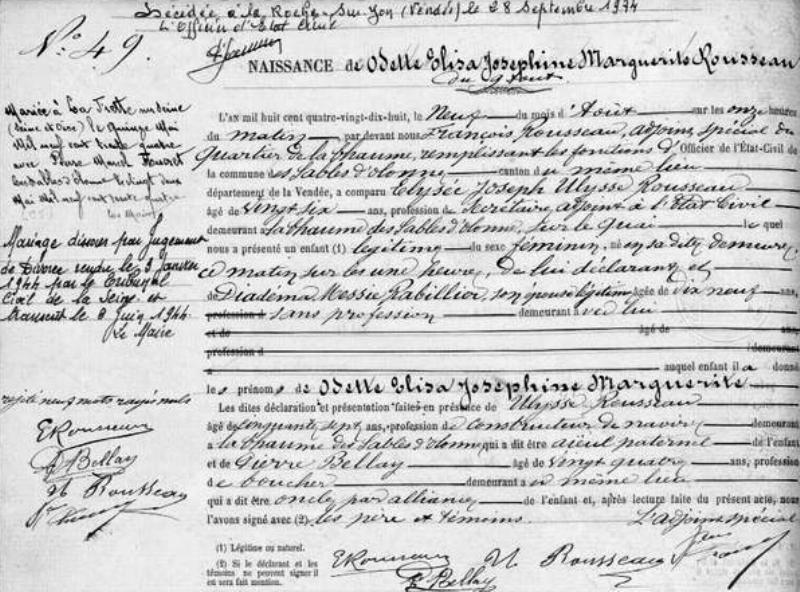 Décédée à la Roche-sur-Yon (Vendée) le 28 Septembre 1974
L'Officier d'Etat Civil
N° 49.
NAISSANCE de Odette Elisa Josephine Marguerite Rousseau
du 9 Aout
Mariée à La Frette sur Seine
(Seine et Oise) le quinze Mai
Mil neuf cent trente quatre
avec Pierre Marcel
Les Sables d'olonne le vingt deux
Mai mil neuf cent trente quatre
Le Maire
Mariage dissous par Jugement
de Divorce rendu le 5 Janvier
1944 par le Tribunal
Civil de la Seine et
transcrit le 8 Juin 1944
Le Maire
L'AN mil huit cent quatre-vingt-dix-huit, le Neuf du mois d'Août sur les onze heures
du matin par devant nous François Rousseau, adjoint spécial du
quartier de la Chaume, remplissant les fonctions d'Officier de l'État-Civil de
la commune des Sables d'olonne canton du même lieu
département de la Vendée, a comparu Elysée Joseph Ulysse Rousseau
âgé de Vingt six ans, profession de Secrétaire adjoint à l'Etat Civil
demeurant à la Chaume des Sables d'olonne, sur le Quai lequel
nous a présenté un enfant (1) légitime du sexe féminin, né en sa dite demeure,
ce matin sur les une heure, de lui déclarant et
de Diadéma Messie Rabillier, son épouse légitime âgée de dix neuf ans,
profession d sans profession demeurant à vec lui
et de âgé de ans,
profession d demeurant
à auquel enfant il a donné
les prénoms de Odette Elisa Josephine Marguerite
Les dites déclaration et présentation faites en présence de Ulysse Rousseau
âgé de cinquante sept ans, profession de constructeur de navires demeurant
à la Chaume des Sables d'olonne qui a dit être aïeul paternel de l'enfant
et de Pierre Bellay âgé de vingt quatre ans, profession
de boucher demeurant à u même lieu
qui a dit être oncle par alliance de l'enfant et, après lecture faite du présent acte, nous
l'avons signé avec (2) les père et témoins. L'adjoint spécial
rejeté neuf mots rayés nuls
E Rousseau
P Bellay
U Rousseau
(1) Légitime ou naturel.
(2) Si le déclarant et les
témoins ne peuvent signer il
en sera fait mention.
E Rousseau
U Rousseau
P Bellay